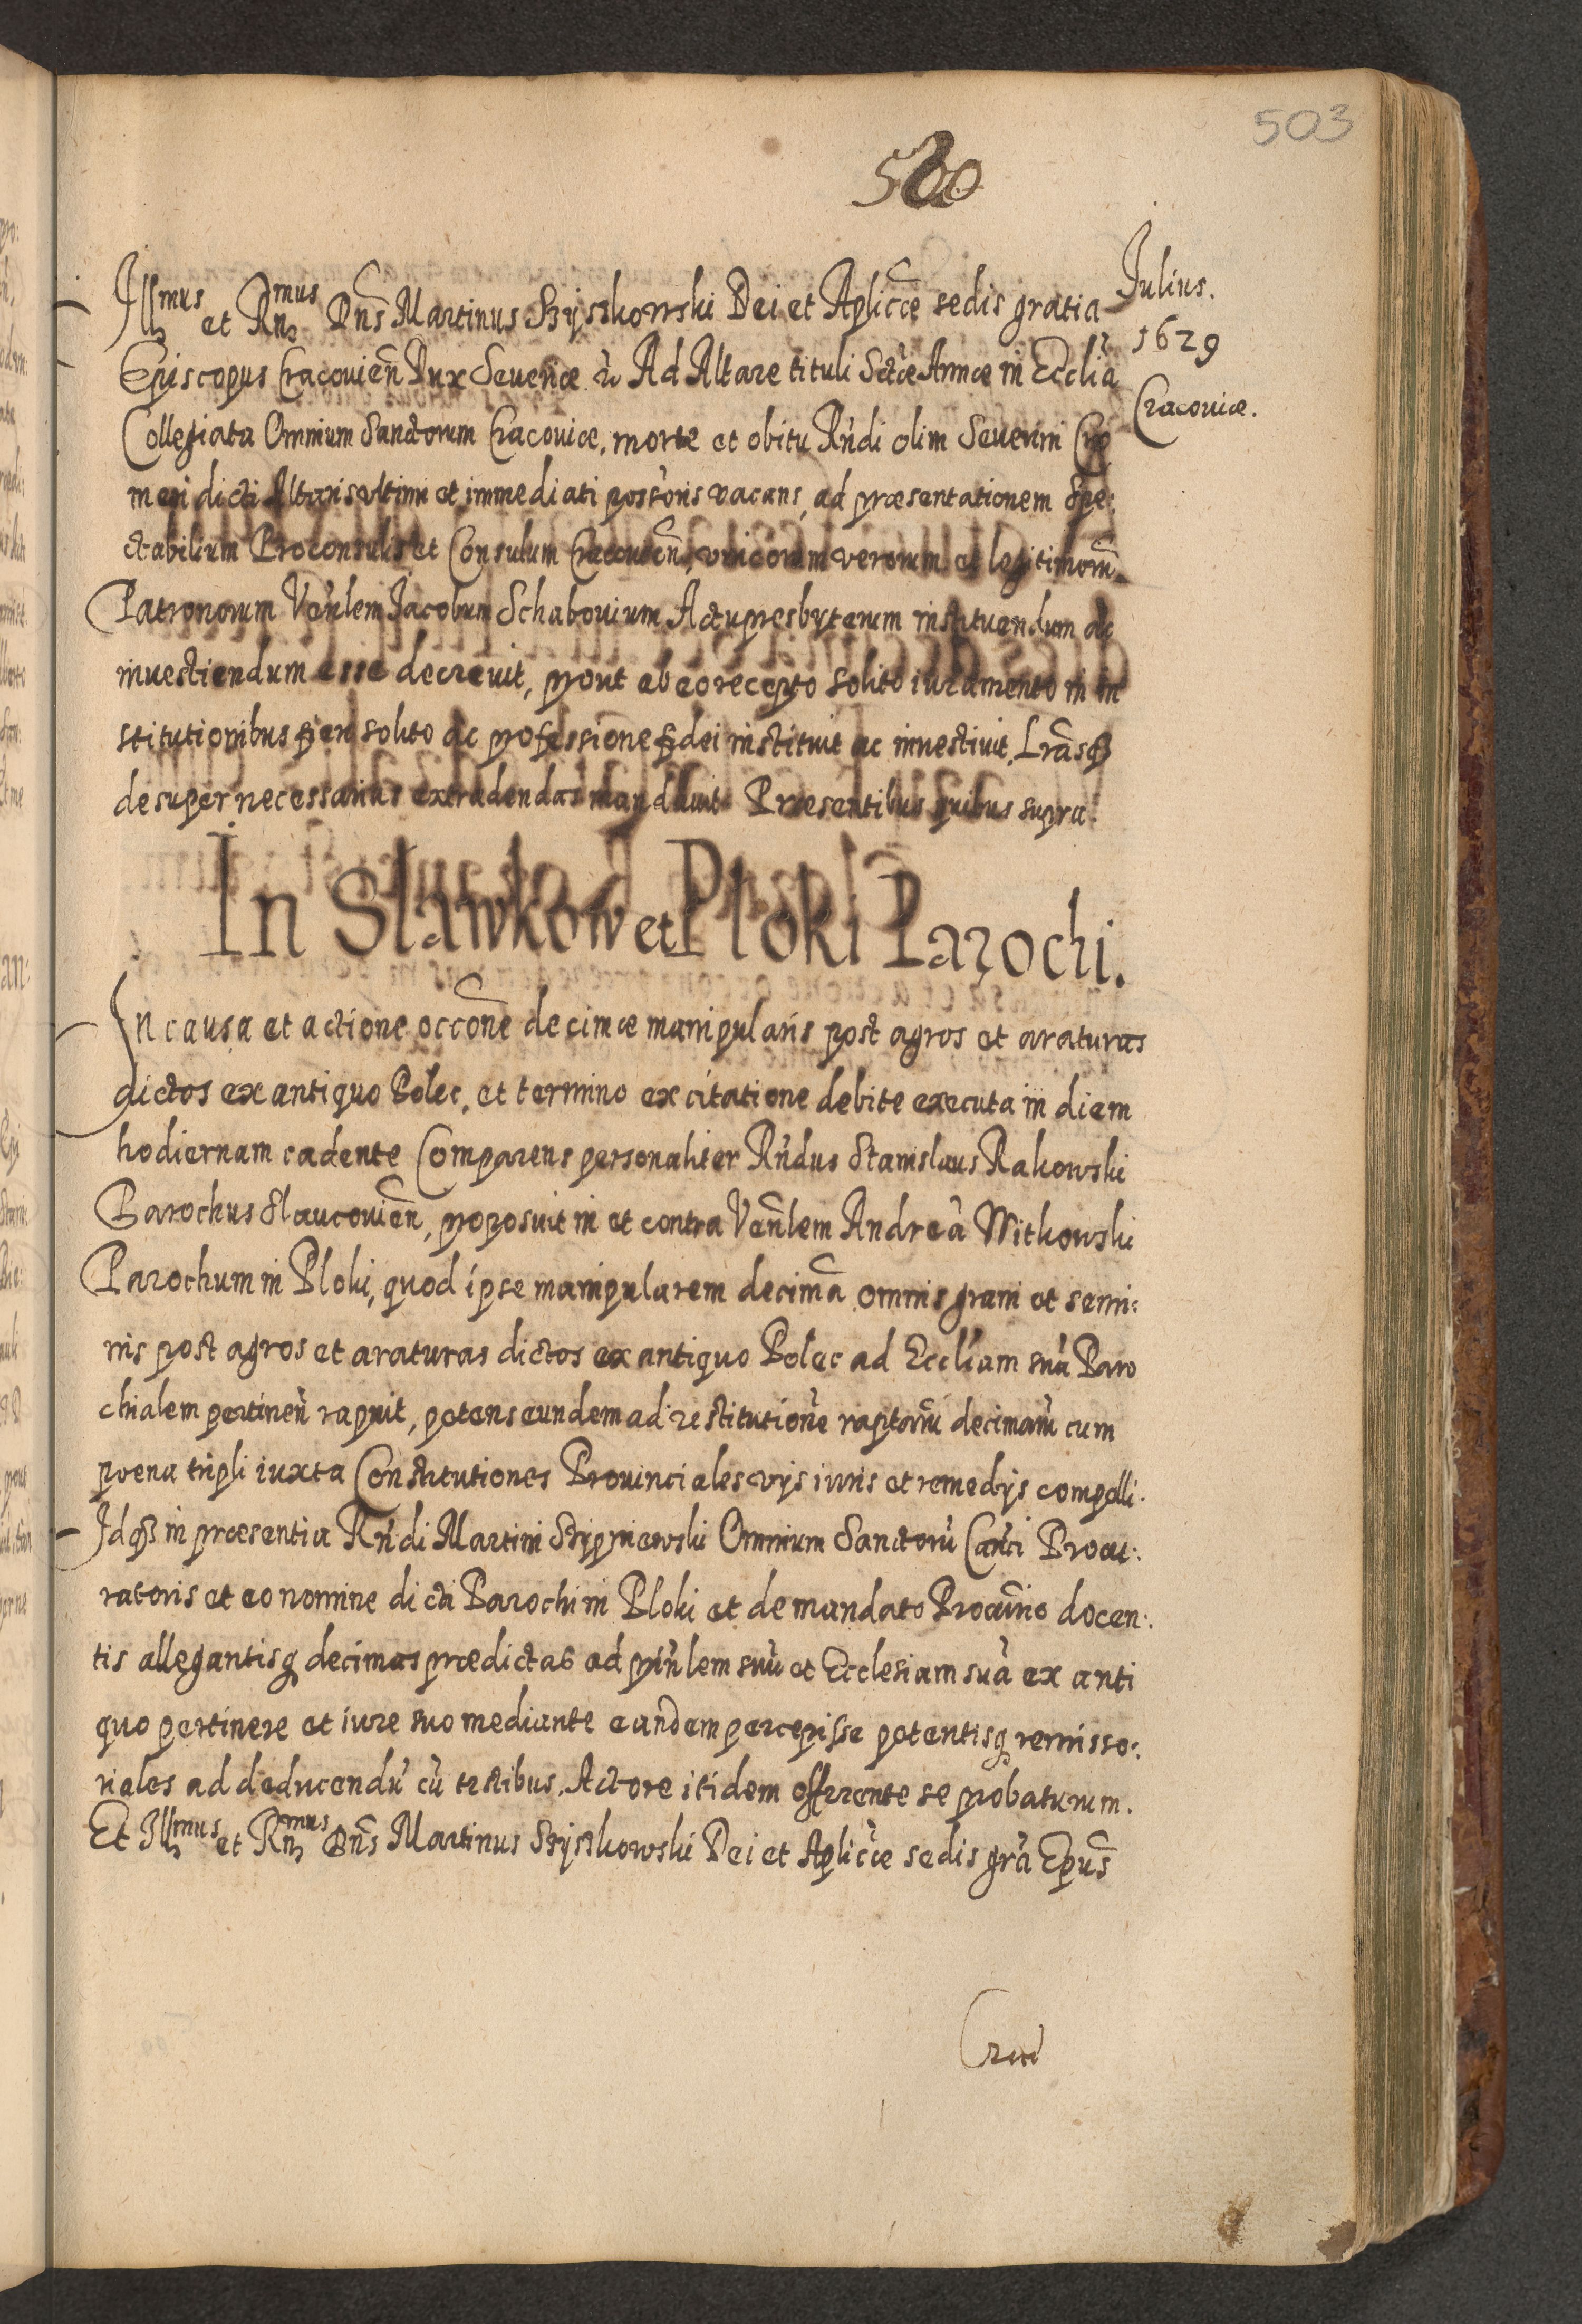 503
500
Julius.
1629
Cracouiæ.
Ill^mus et Rn^mus Dn̄s Martinus Szyszkowski Dei et Aplicæ sedis gratia
Episcopus Cracouień Dux Seueriæ &c Ad Altare tituli Sctæ Annæ in Ecclia
Collegiata Omnium Sanctorum Cracouiæ, morte et obitu Rńdi olim Seuerini
meri dicti Altaris vltimi et immediati possoris vacans, ad præsentationem Spe:
ctabilium Proconsulis et Consulum Cracouień, vnicorum verorum et legitimorū
Patronorum Venlem Jacobum Schabouium Actupresbyterum instituendum ac
inuestiendum esse decreuit, prout ab eo recepto solito iuramento in in
stitutionibus fieri solito ac professione fidei instituit ac inuestiuit, Lrāsq
desuper necessarias extradendas mandauit Præsentibus quibus supra.
In Sławkow et Płoki Parochi.
In causa et actione occōne decimæ manipularis post agros et araturas
dictos ex antiquo Polec, et termino ex citatione debite executa in diem
hodiernam cadente Comparens personaliter Rńdus Stanislaus Rakowski
Parochus Slaucouień, proposuit in et contra Venlem Andreā Witkowski
Parochum in Ploki, quod ipse manipularem decimā omnis grani et semi:
nis post agros et araturas dictos ex antiquo Polec ad Eccliam suā Paro
chialem pertineń rapuit, petens eundem ad restitutionē raptarū decimarū cum
poena tripli iuxta Constitutiones Prouinciales vijs iuris et remedijs compelli.
Idq in præsentia Rńdi Martini Stypniewski Omnium Sanctorū Canci Procu:
ratoris et eo nomine dicti Parochi in Ploki et de mandato Procurio docen:
tis allegantisq decimas prædictas ad prinlem suū et Ecclesiam suā ex anti
quo pertinere et iure suo mediante eandem percepisse petentisq remisso:
riales ad deducendū cū testibus. Actore itidem offerente se probaturum.
Et Ill^mus et Rn^mus Dn̄s Martinus Szyszkowski Dei et Aplicæ sedis grā Epus̄